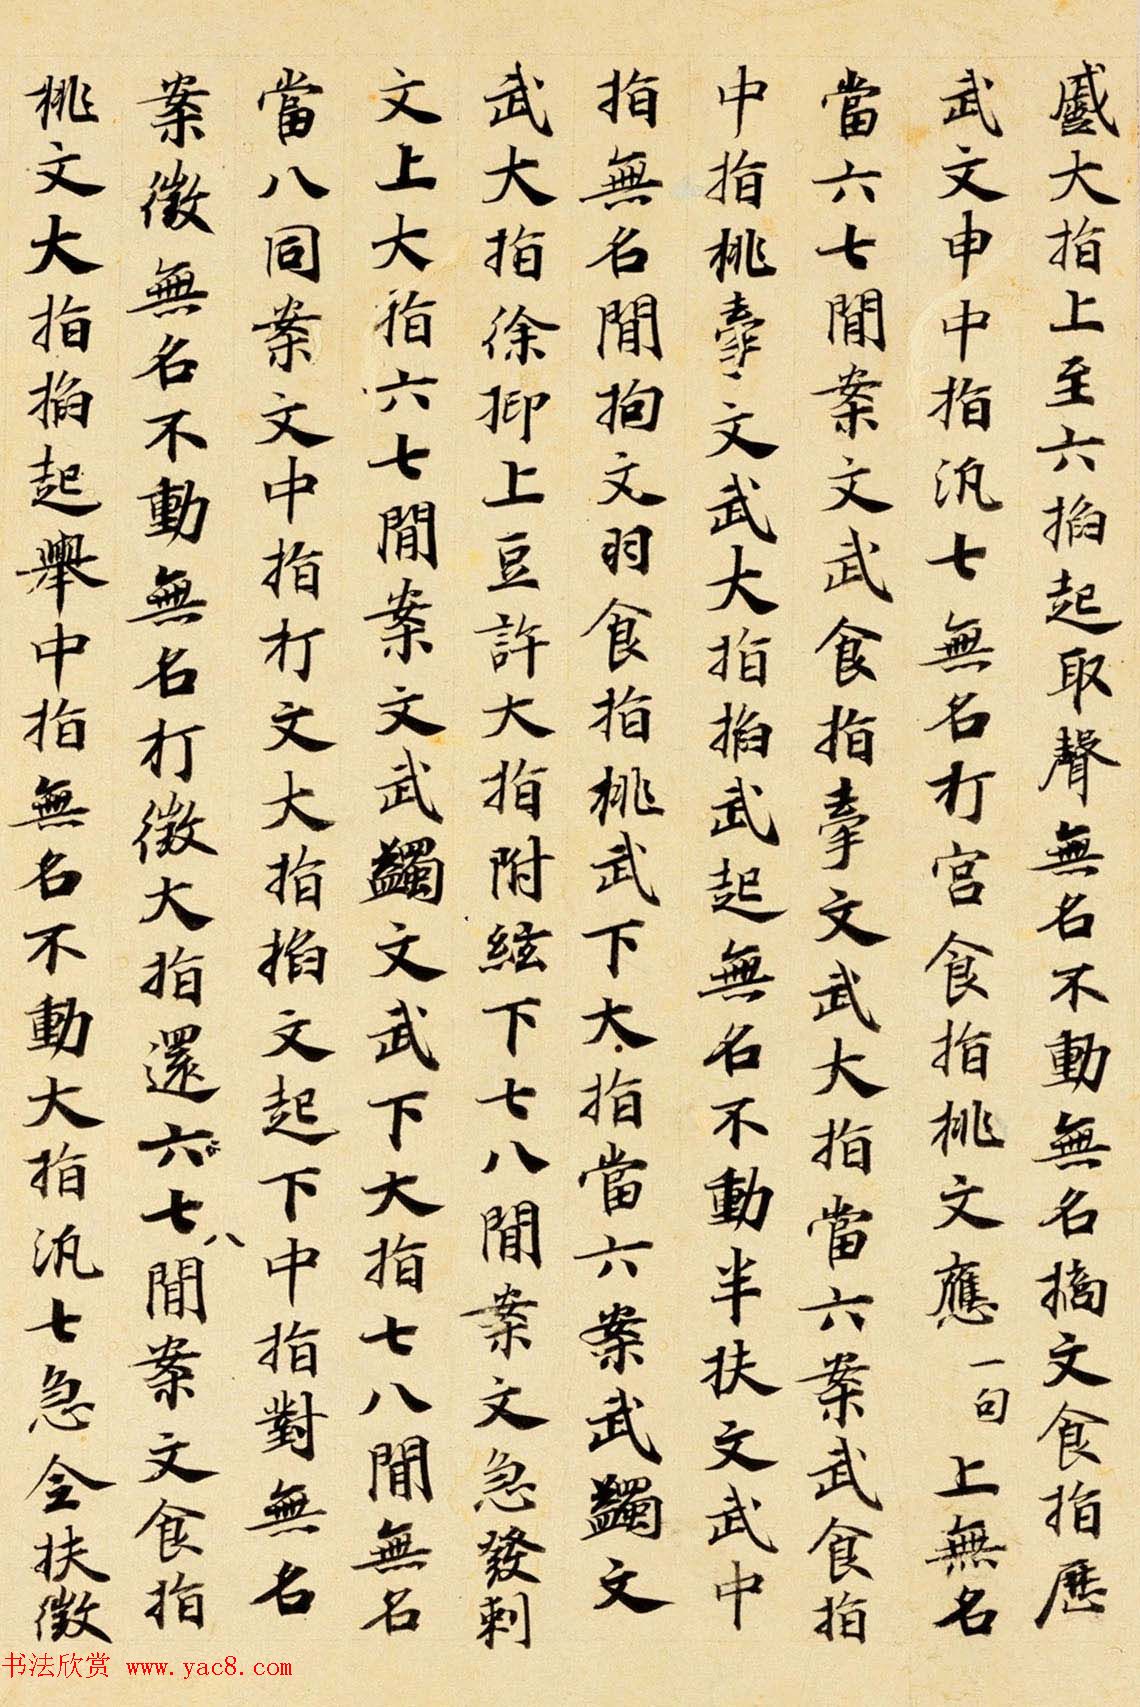 蹙大指上至六掐起取聲無名不動無名摘文食指歷
武文申中指汎七無名打宮食指桃文應一句上無名
當六七間案文武食指牽文武大指當六案武食指
中指桃牽文武大指掐武起無名不動半扶文武中
指無名間拘文羽食指桃武下大指當六案武蠲文
武大指徐抑上豆許大指附絃下七八間案文急發刺
文上大指六七間案文武蠲文武下大指七八間無名
當八同案文中指打文大指掐文起下中指對無名
案徵無名不動無名打徵大指還六七八間案文食指
桃文大指掐起舉中指無名不動大指汎七急全扶徵
书法欣赏 www.yac8.com